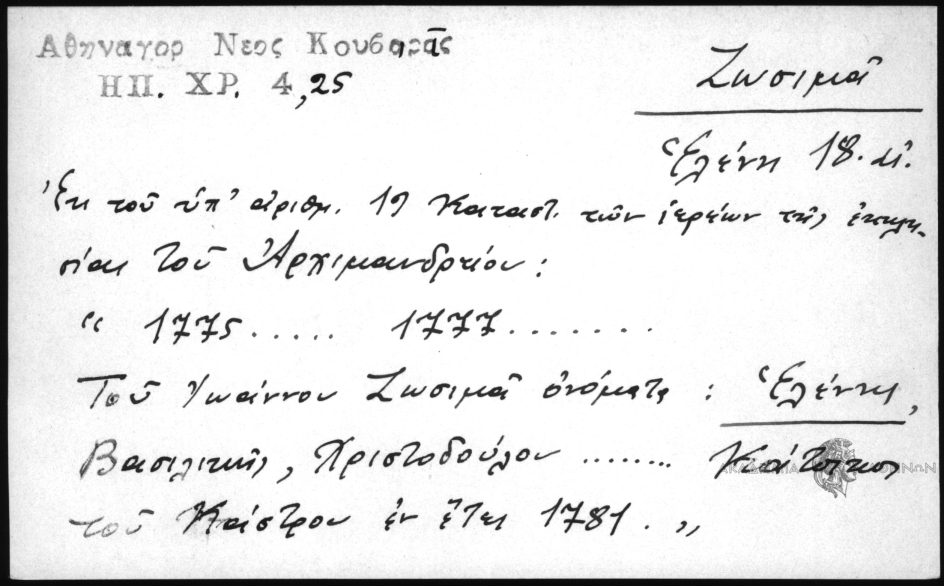 Αθηναγορ Νεος Κουβαρᾶς
ΗΠ. ΧΡ. 4,25
Ζωσιμᾶ
Ἑλένη 18. αἰ.
Ἐκ τοῦ ὑπ' ἀριθμ. 19 Καταστ. τῶν ἱερέων τῆς ἐκκλη-
σίας τοῦ Ἀρχιμανδρείου:
“ 1775 ..... 1777 .......
Τοῦ Ἰωάννου Ζωσιμᾶ ὀνόματα: Ἑλένης,
Βασιλικῆς, Χριστοδούλου ........ Κάτοικος
τοῦ Κάστρου ἐν ἔτει 1781. „